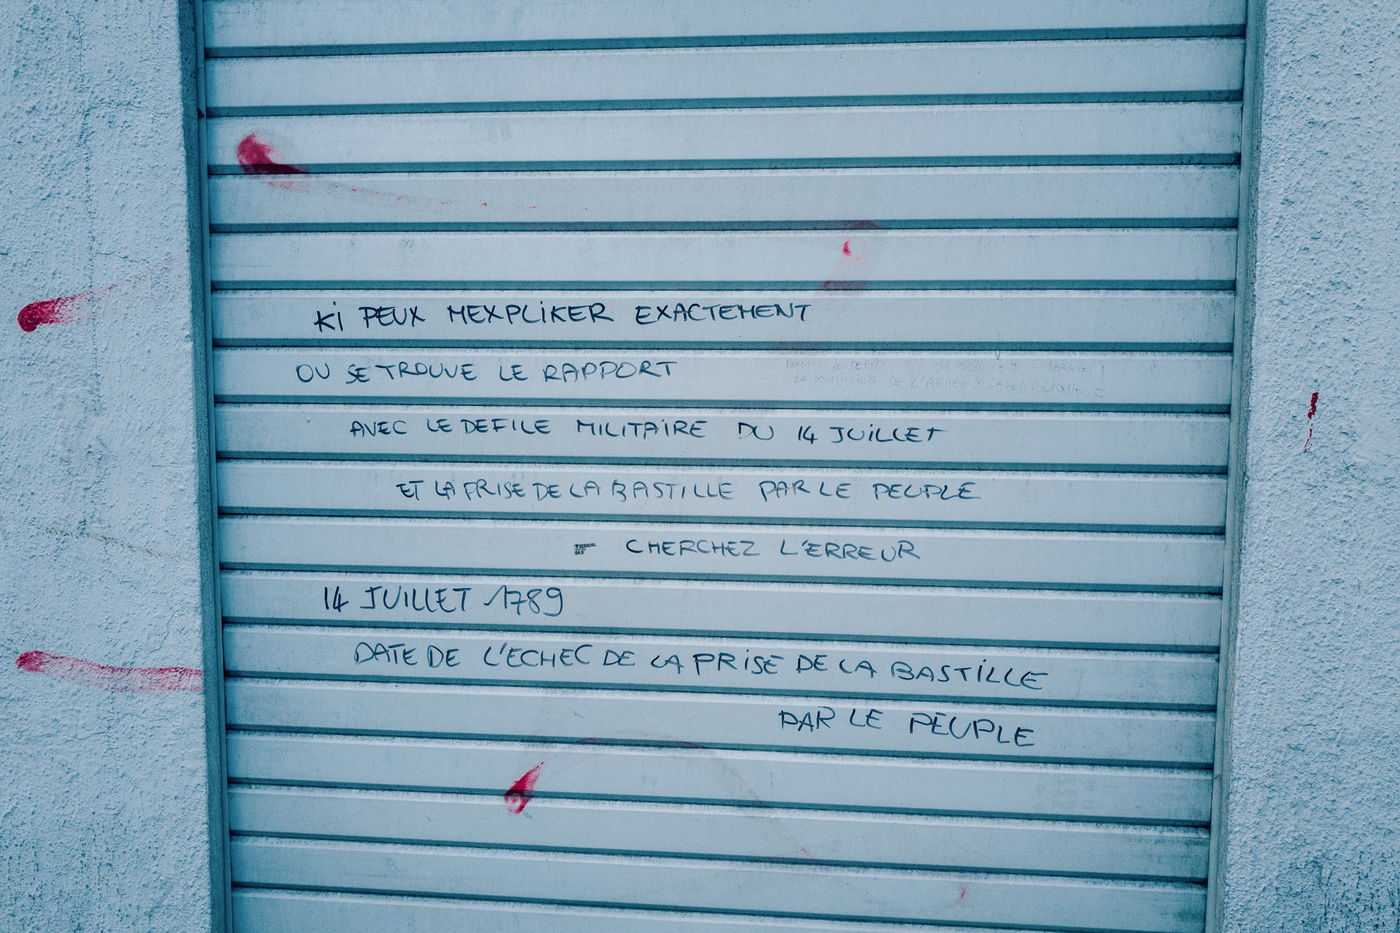 KI PEUX MEXPLIKER EXACTEMENT
OU SE TROUVE LE RAPPORT
LA SOUMISSION DE L'ARMÉE A LA REPUBLIQUE
AVEC LE DEFILE MILITAIRE DU 14 JUILLET
ET LA PRISE DE LA BASTILLE PAR LE PEUPLE
CHERCHEZ L'ERREUR
14 JUILLET 1789
DATE DE L'ECHEC DE LA PRISE DE LA BASTILLE
PAR LE PEUPLE